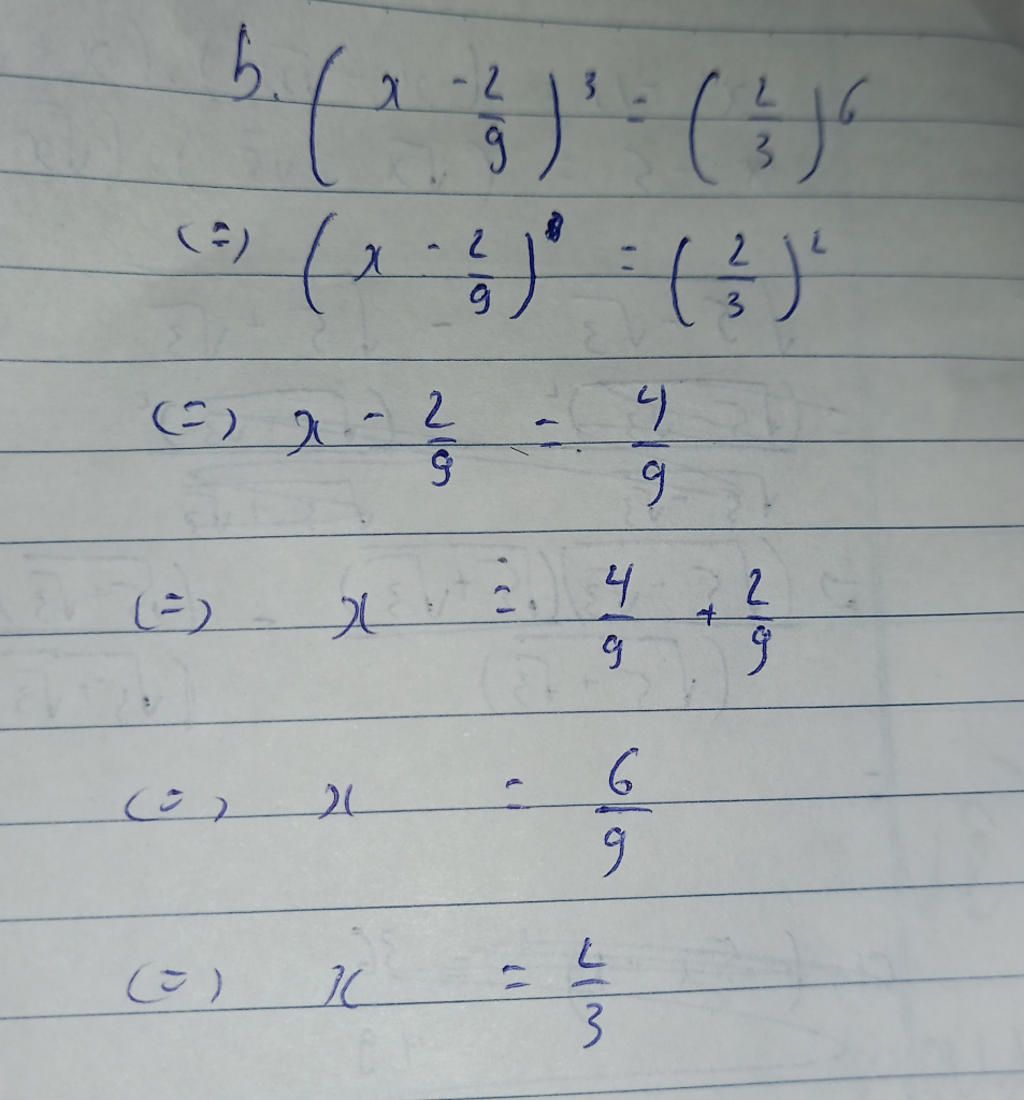 b. (x - 2/9)³ = (2/3)⁶
(=) (x - 2/9) = (2/3)²
(=) x - 2/9 = 4/9
(=) x = 4/9 + 2/9
(=) x = 6/9
(=) x = 2/3